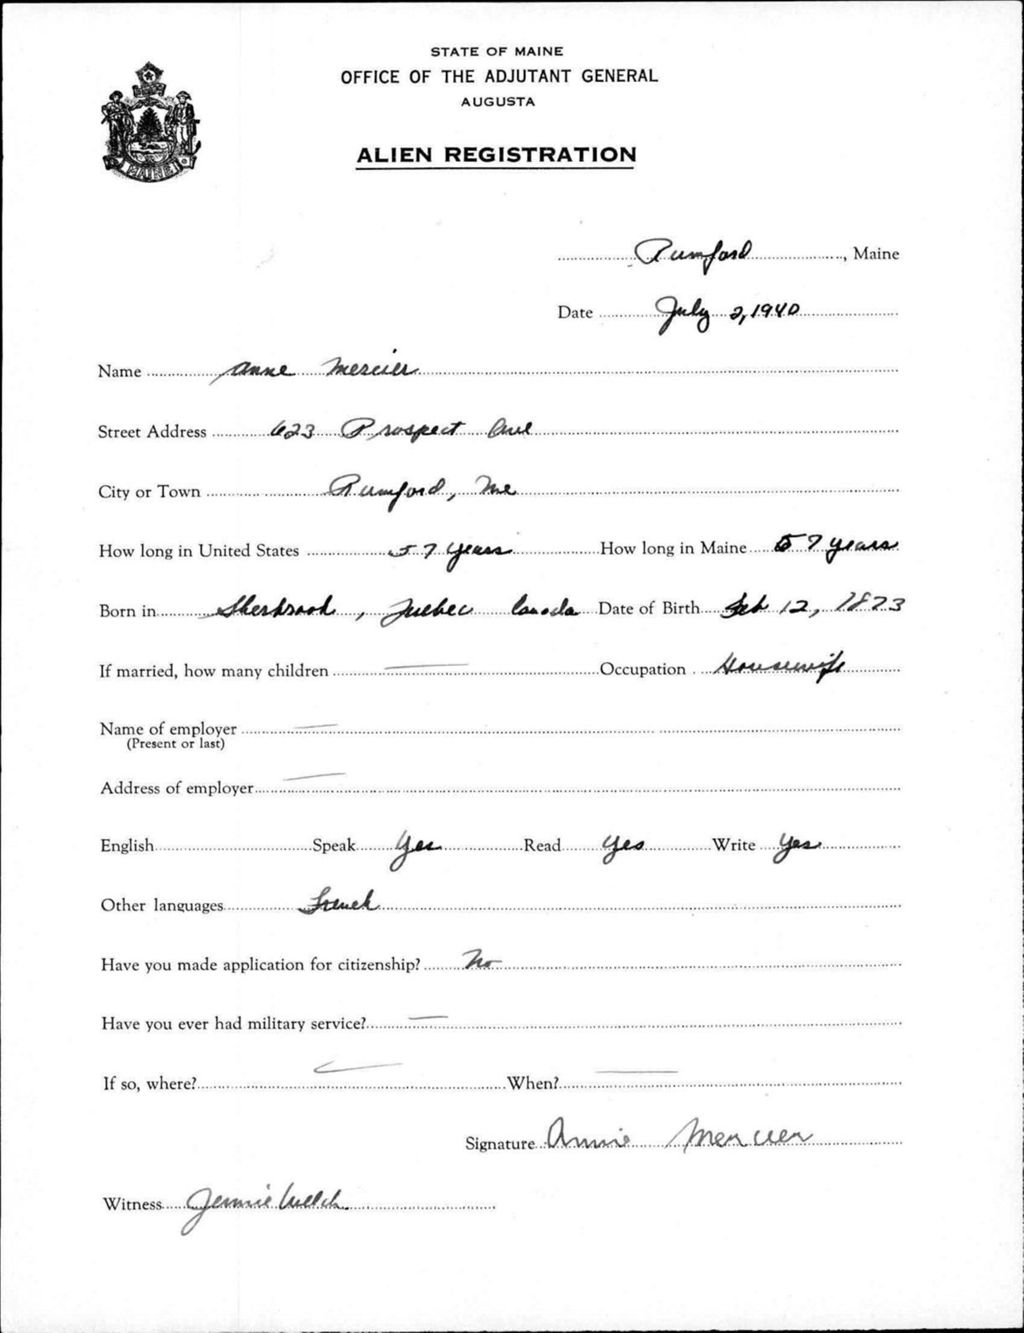 STATE OF MAINE
OFFICE OF THE ADJUTANT GENERAL
AUGUSTA
ALIEN REGISTRATION
MAINE
Rumford, Maine
Date July 2, 1940
Name Anne Mercier
Street Address 623 Prospect Ave
City or Town Rumford, Me
How long in United States 57 years How long in Maine 57 years
Born in Sherbrook, Quebec Canada Date of Birth Feb 12, 1873
If married, how many children — Occupation Housewife
Name of employer —
(Present or last)
Address of employer —
English Speak Yes Read Yes Write Yes
Other languages French
Have you made application for citizenship? No
Have you ever had military service? —
If so, where? — When? —
Signature Annie Mercier
Witness Jennie Welch